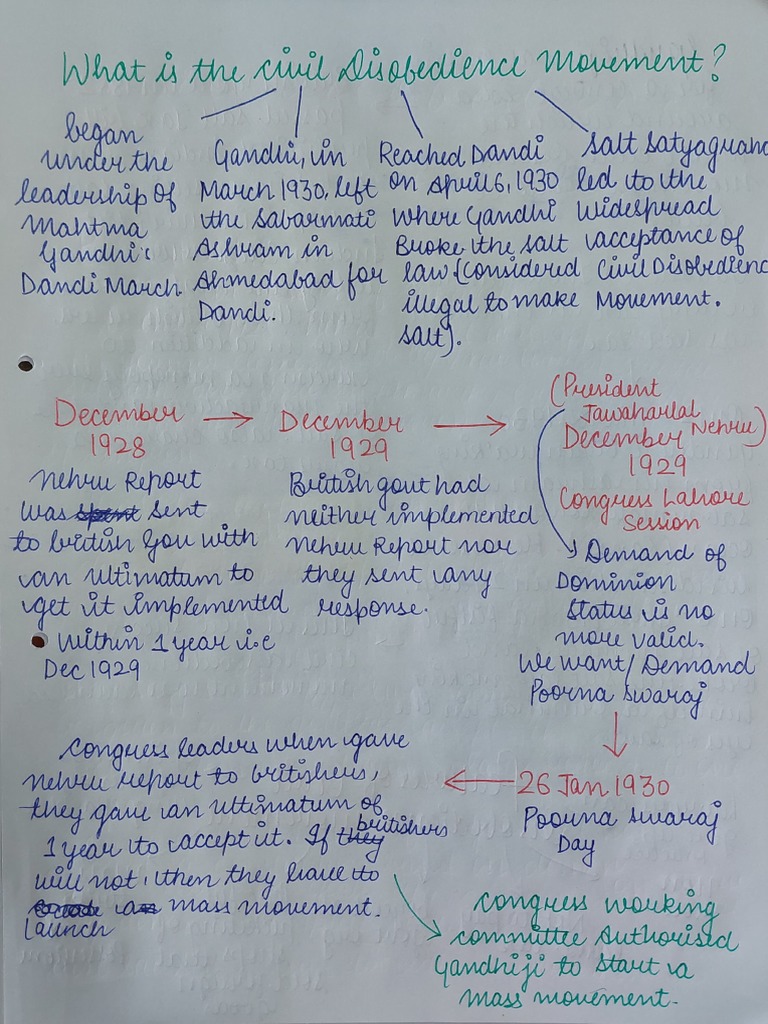 What is the civil Disobedience Movement?
began
under the
leadership of
Mahtma
Gandhi's
Dandi March
Gandhi, in
March 1930, left
the Sabarmati
Ashram in
Ahmedabad for
Dandi.
Reached Dandi
on April 6, 1930
where Gandhi
Broke the salt
law (Considered
illegal to make
salt).
Salt Satyagraha
led to the
Widespread
acceptance of
Civil Disobedienc
Movement.
December →
1928
Nehru Report
was spent sent
to british Gov with
an ultimatum to
get it implemented
within 1 year i.e
Dec 1929
December →
1929
British govt had
neither implemented
Nehru Report nor
they sent any
response.
(President
Jawaharlal
Nehru)
December
1929
Congress Lahore
Session
Demand of
Dominion
Status is no
more valid.
We want/Demand
Poorna Swaraj
26 Jan 1930
Poorna Swaraj
Day
Congress leaders when gave
Nehru report to britishers,
they gave an ultimatum of
1 year to accept it. If they britishers
will not, then they have to
launch a mass movement.
Congress working
committee Authorised
Gandhiji to start a
mass movement.